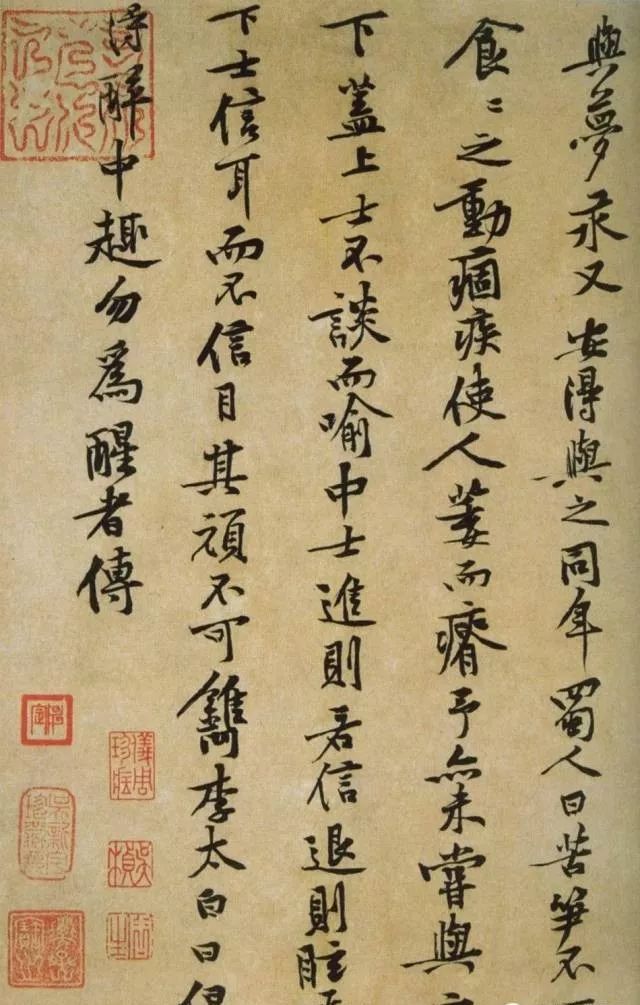 與夢汞又安得與之同年蜀人曰苦笋不
食〻之動痼疾使人萎而瘠予亦未嘗與
下蓋上士不談而喻中士進則若信退則眩
下士信耳而不信目其頑不可鐫李太白曰但
得醉中趣勿爲醒者傳